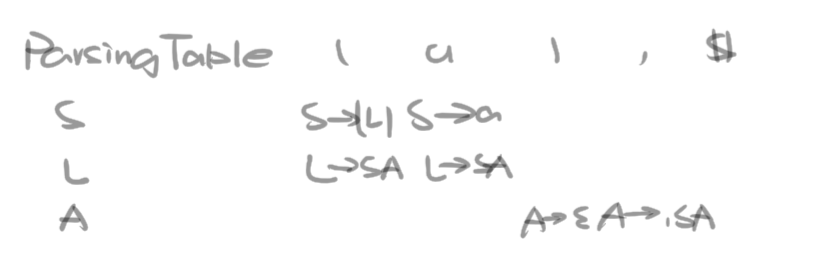 Parsing Table ( a ) , $
S S→(L) S→a
L L→SA L→SA
A A→ε A→,SA